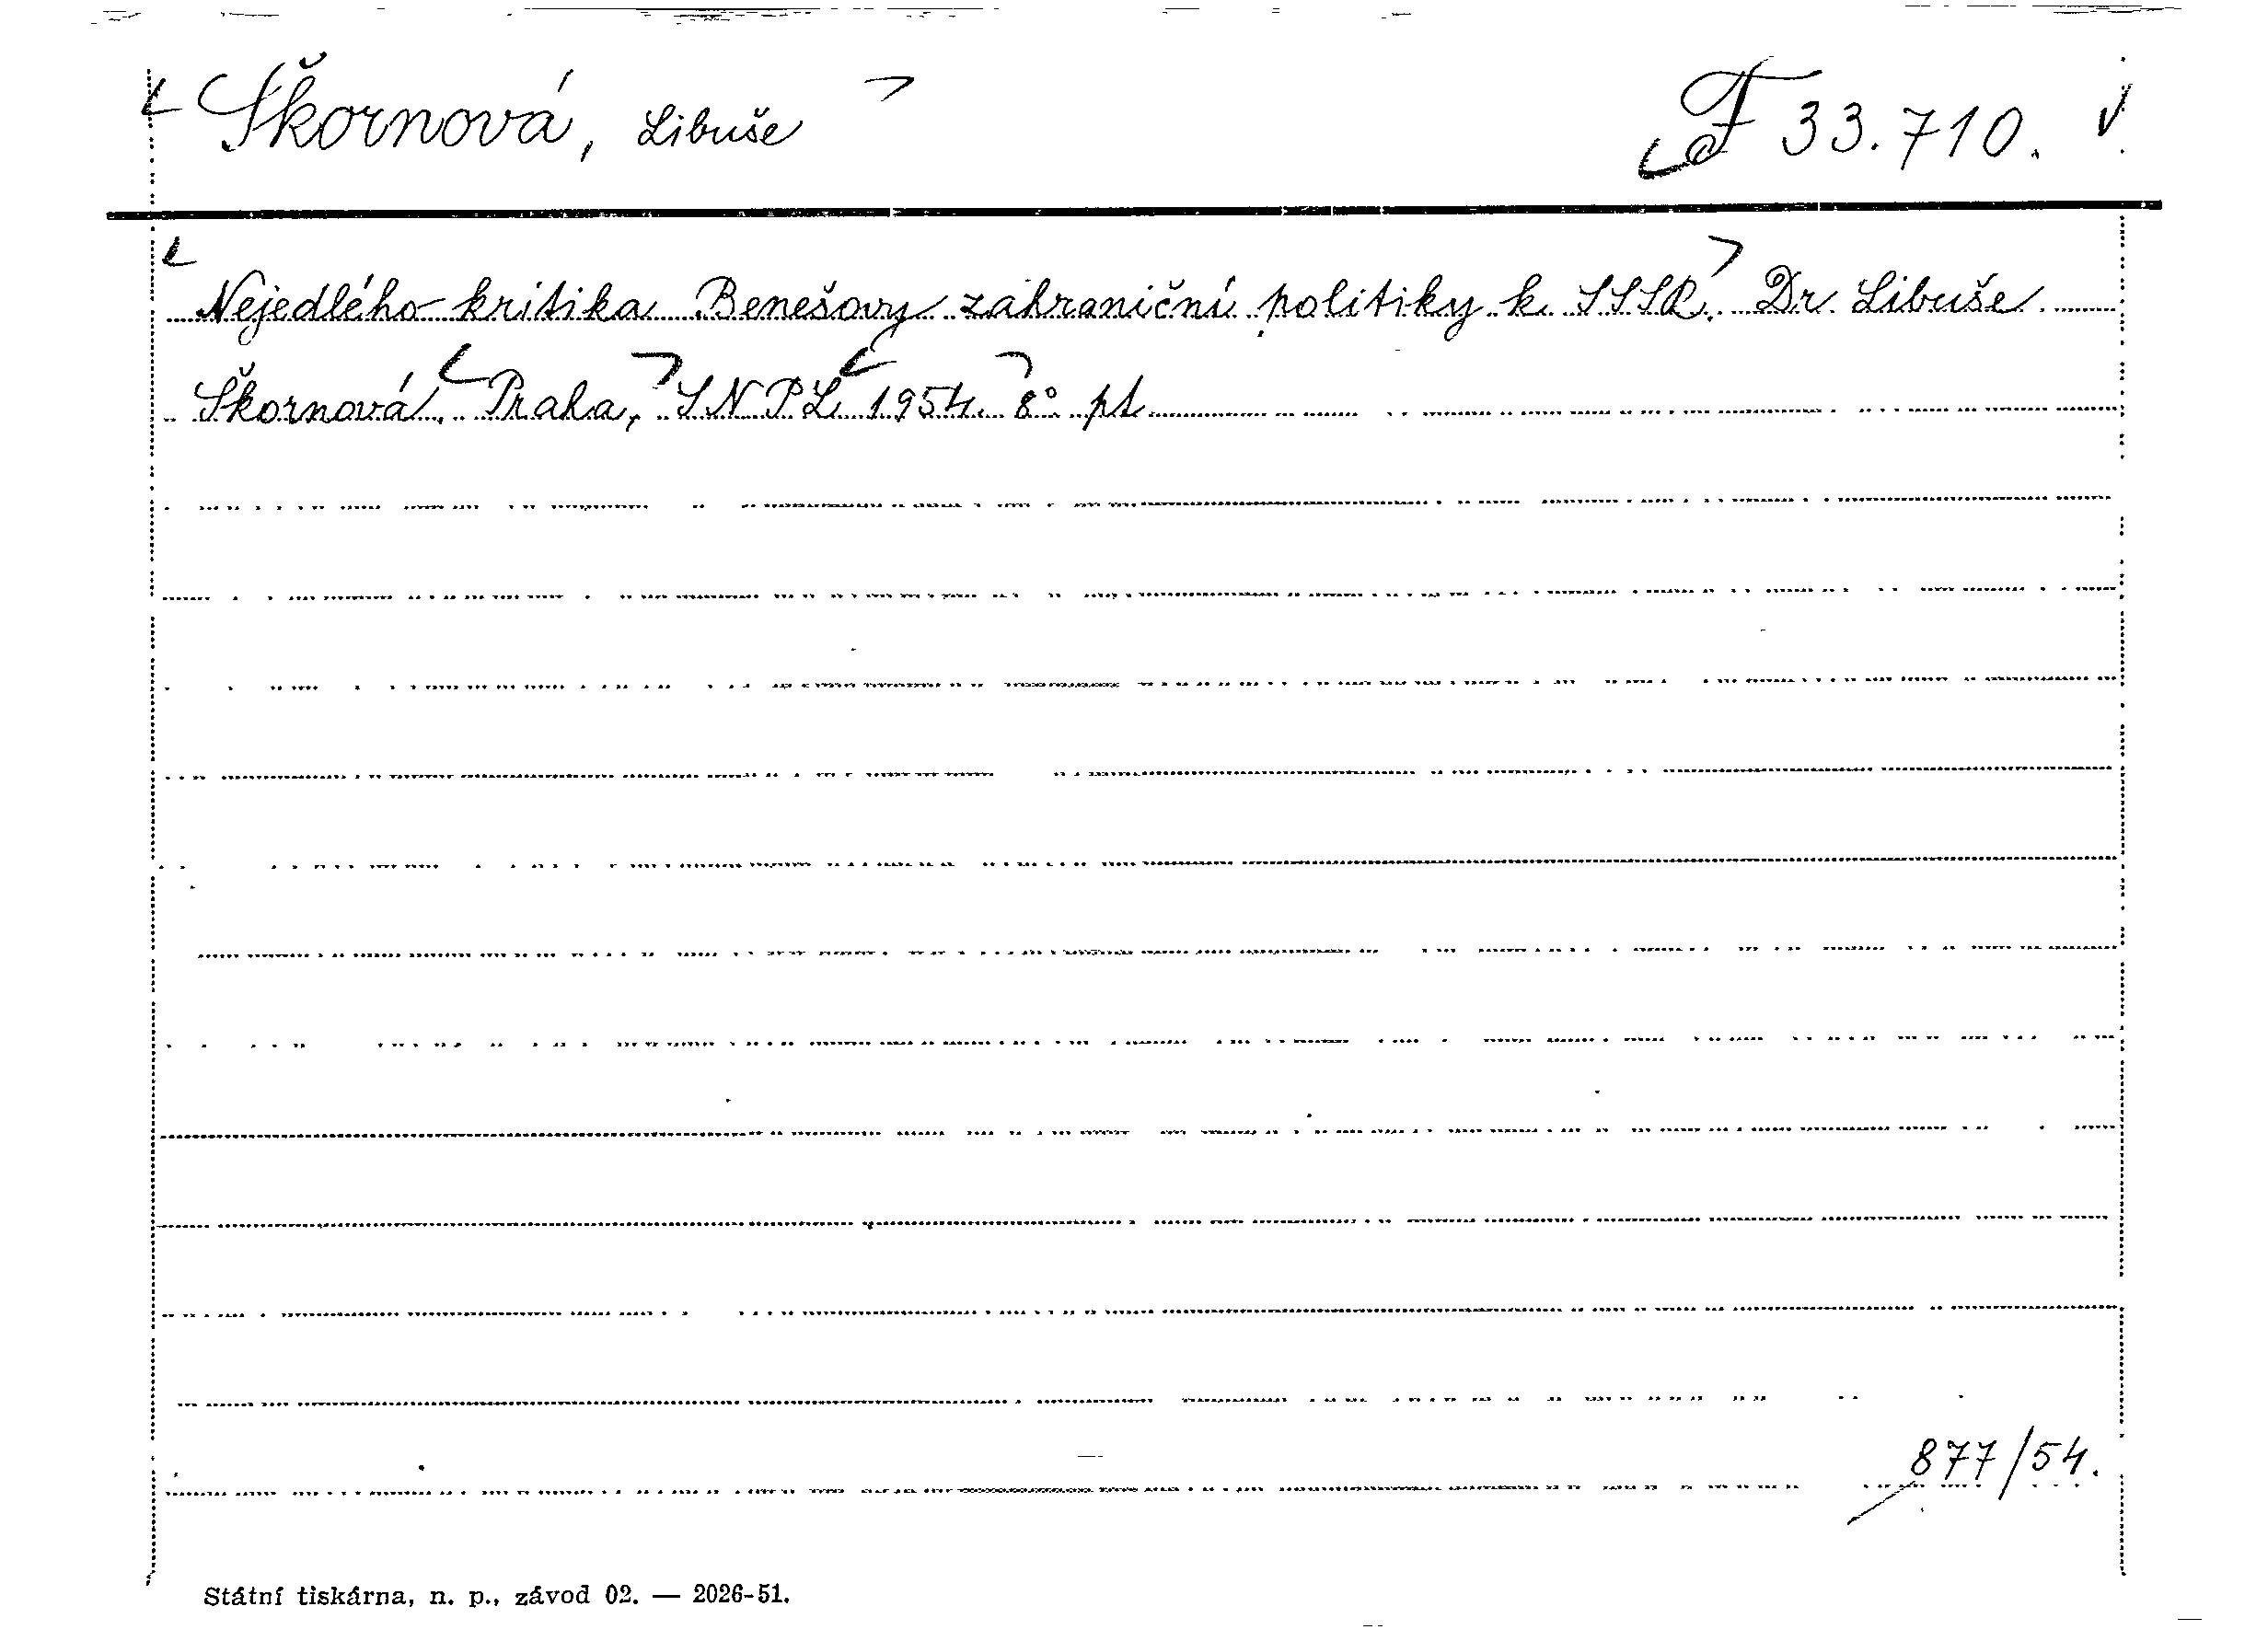 Škornová, Libuše F 33.710.
Nejedlého kritika Benešovy zahraniční politiky k SSSR. Dr. Libuše
Škornová. Praha, SNPL 1954. 8° pt
877/54.
Státní tiskárna, n. p., závod 02. — 2026-51.